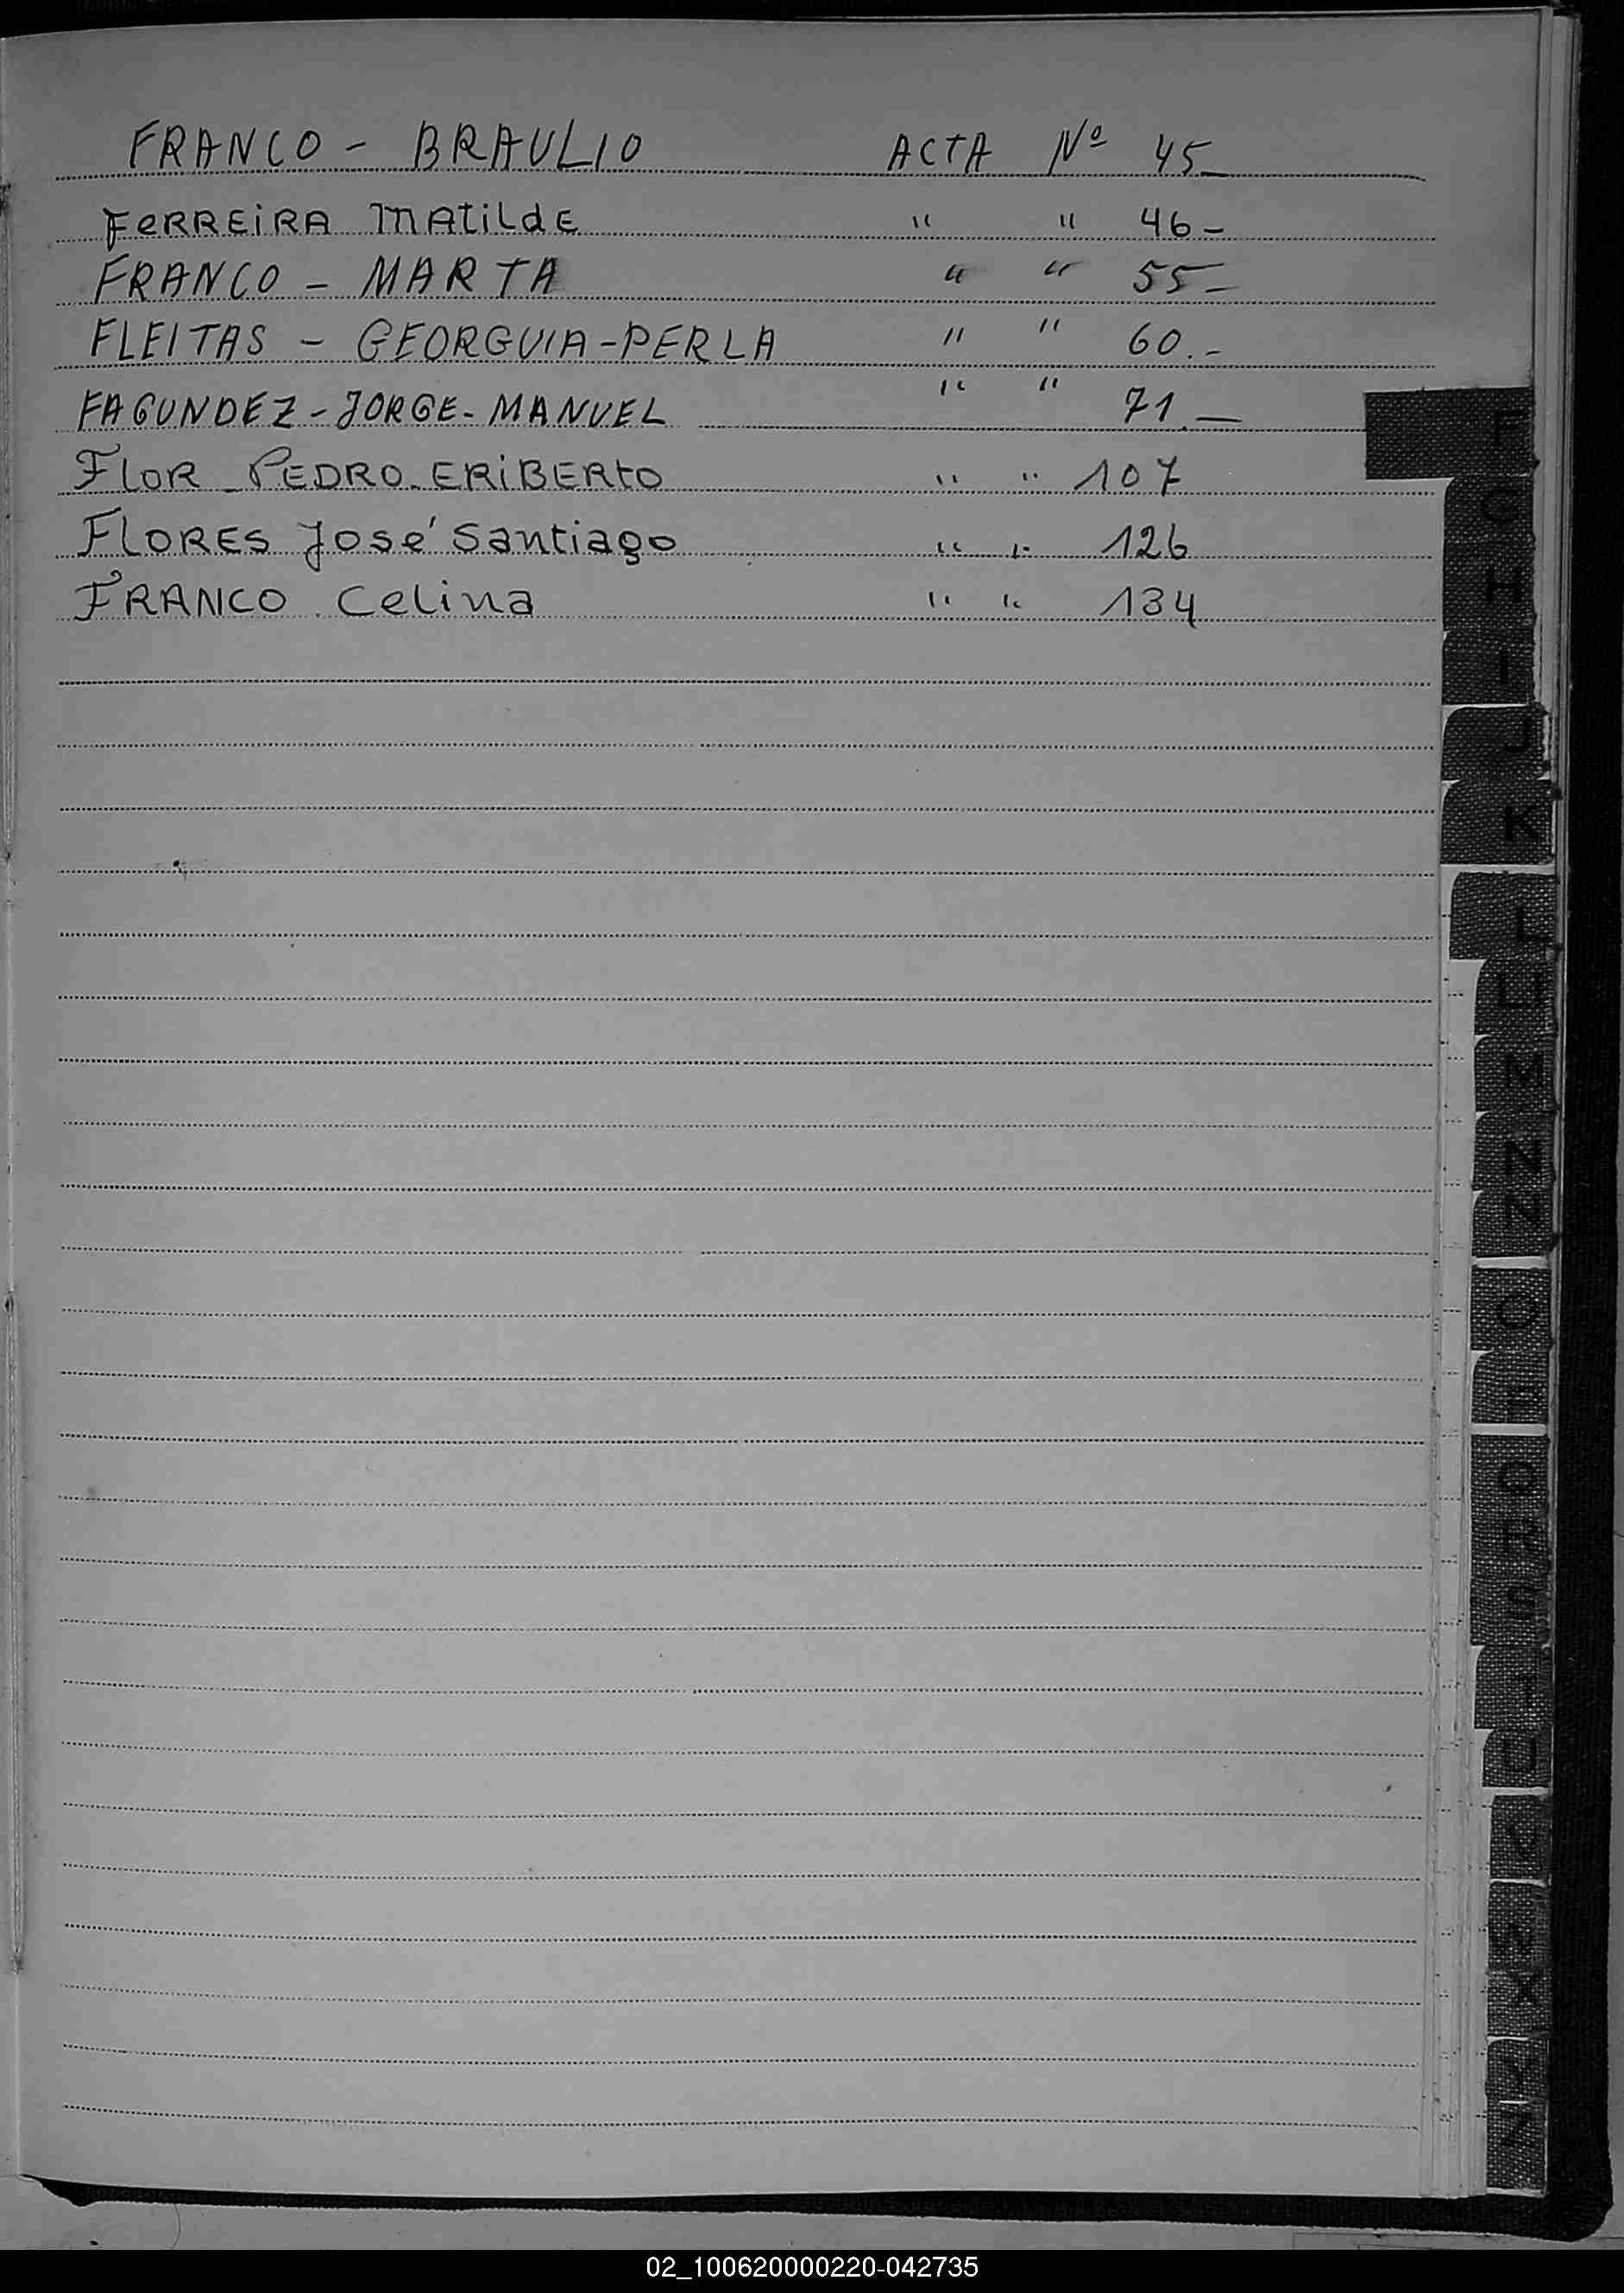 FRANCO - BRAULIO ACTA Nº 45_
FERREiRA MAtiLdE " " 46 -
FRANCO - MARTA " " 55 -
FLEITAS - GEORGUIA - PERLA " " 60.-
FAGUNDEZ - JORGE - MANUEL " " 71.—
FloR PEDRO ERiBERto " " 107
FloRES José Santiago " " 126
FRANCO Celina " " 134
F
G
H
I
J
K
L
LL
M
N
Ñ
O
P
Q
R
S
T
U
V
W
X
Y
Z
02_100620000220-042735